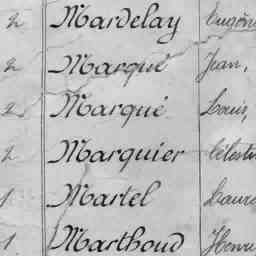 2 Mardelay Eugèn
2 Marqué Jean,
2 Marqué Louis,
2 Marquier Célestin
1 Martel Laure
1 Marthoud Henri